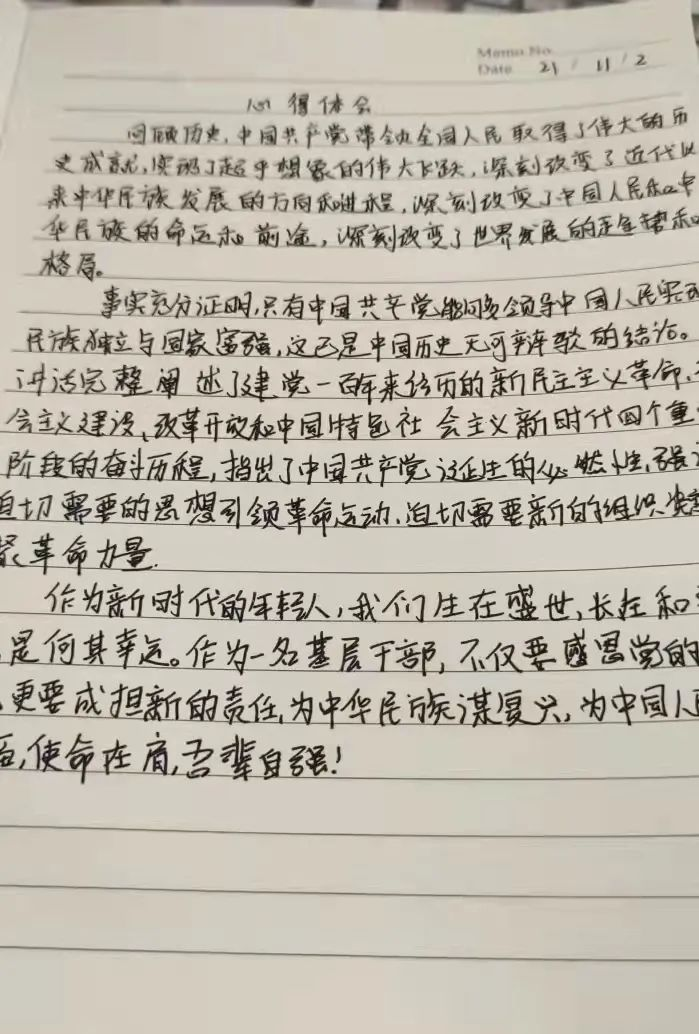 Memo No.
Date 21 / 11 / 2
心得体会
回顾历史,中国共产党带领全国人民取得了伟大的历
史成就,实现了超乎想象的伟大飞跃,深刻改变了近代以
来中华民族发展的方向和进程,深刻改变了中国人民和中
华民族的命运和前途,深刻改变了世界发展的趋势和
格局。
事实充分证明,只有中国共产党能够领导中国人民实现
民族独立与国家富强,这已是中国历史无可辩驳的结论。
讲话完整阐述了建党一百年来经历的新民主主义革命、
会主义建设、改革开放和中国特色社会主义新时代四个重
阶段的奋斗历程,指出了中国共产党诞生的必然性,强
迫切需要的思想引领革命运动、迫切需要新的组织
聚革命力量.
作为新时代的年轻人,我们生在盛世,长在和
是何其幸运。作为一名基层干部,不仅要感恩党的
更要成担新的责任,为中华民族谋复兴,为中国人
使命在肩,吾辈自强!